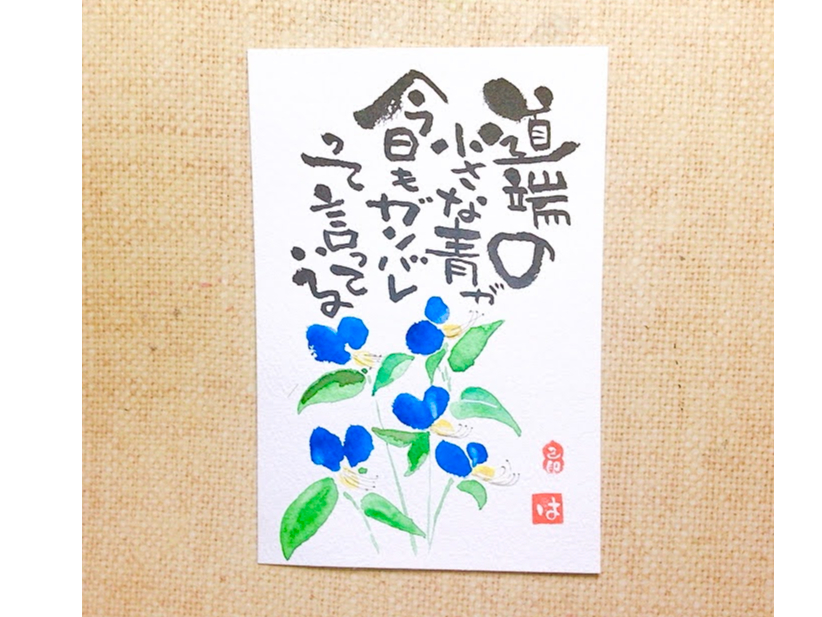 道端の
小さな青が
今日もガンバレ
って言ってる
は